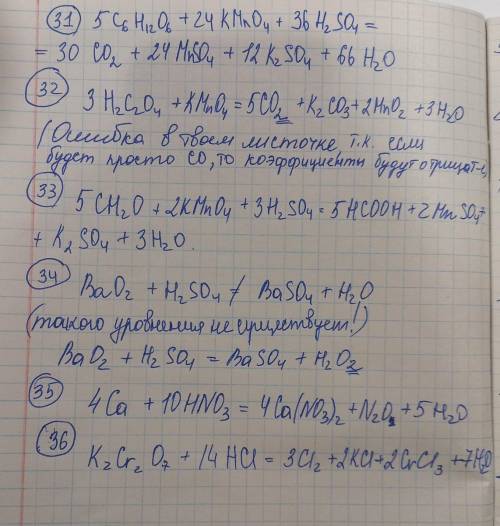 31 5 C₆H₁₂O₆ + 24 KMnO₄ + 36 H₂SO₄ =
= 30 CO₂ + 24 MnSO₄ + 12 K₂SO₄ + 66 H₂O
32 3 H₂C₂O₄ + KMnO₄ = 5CO₂ + K₂CO₃ + 2MnO₂ + 3H₂O
(Ошибка в твоем листочке, т.к. если
будет просто CO, то коэффициенты будут отрицат-е,
33 5 CH₂O + 2KMnO₄ + 3H₂SO₄ = 5 HCOOH + 2MnSO₄+
+ K₂SO₄ + 3H₂O.
34 BaO₂ + H₂SO₄ ≠ BaSO₄ + H₂O
(такого уровнения не существует!)
BaO₂ + H₂SO₄ = BaSO₄ + H₂O₂
35 4Ca + 10HNO₃ = 4Ca(NO₃)₂ + N₂O + 5H₂O
36 K₂Cr₂O₇ + 14HCl = 3Cl₂ + 2KCl + 2CrCl₃ + 7H₂O